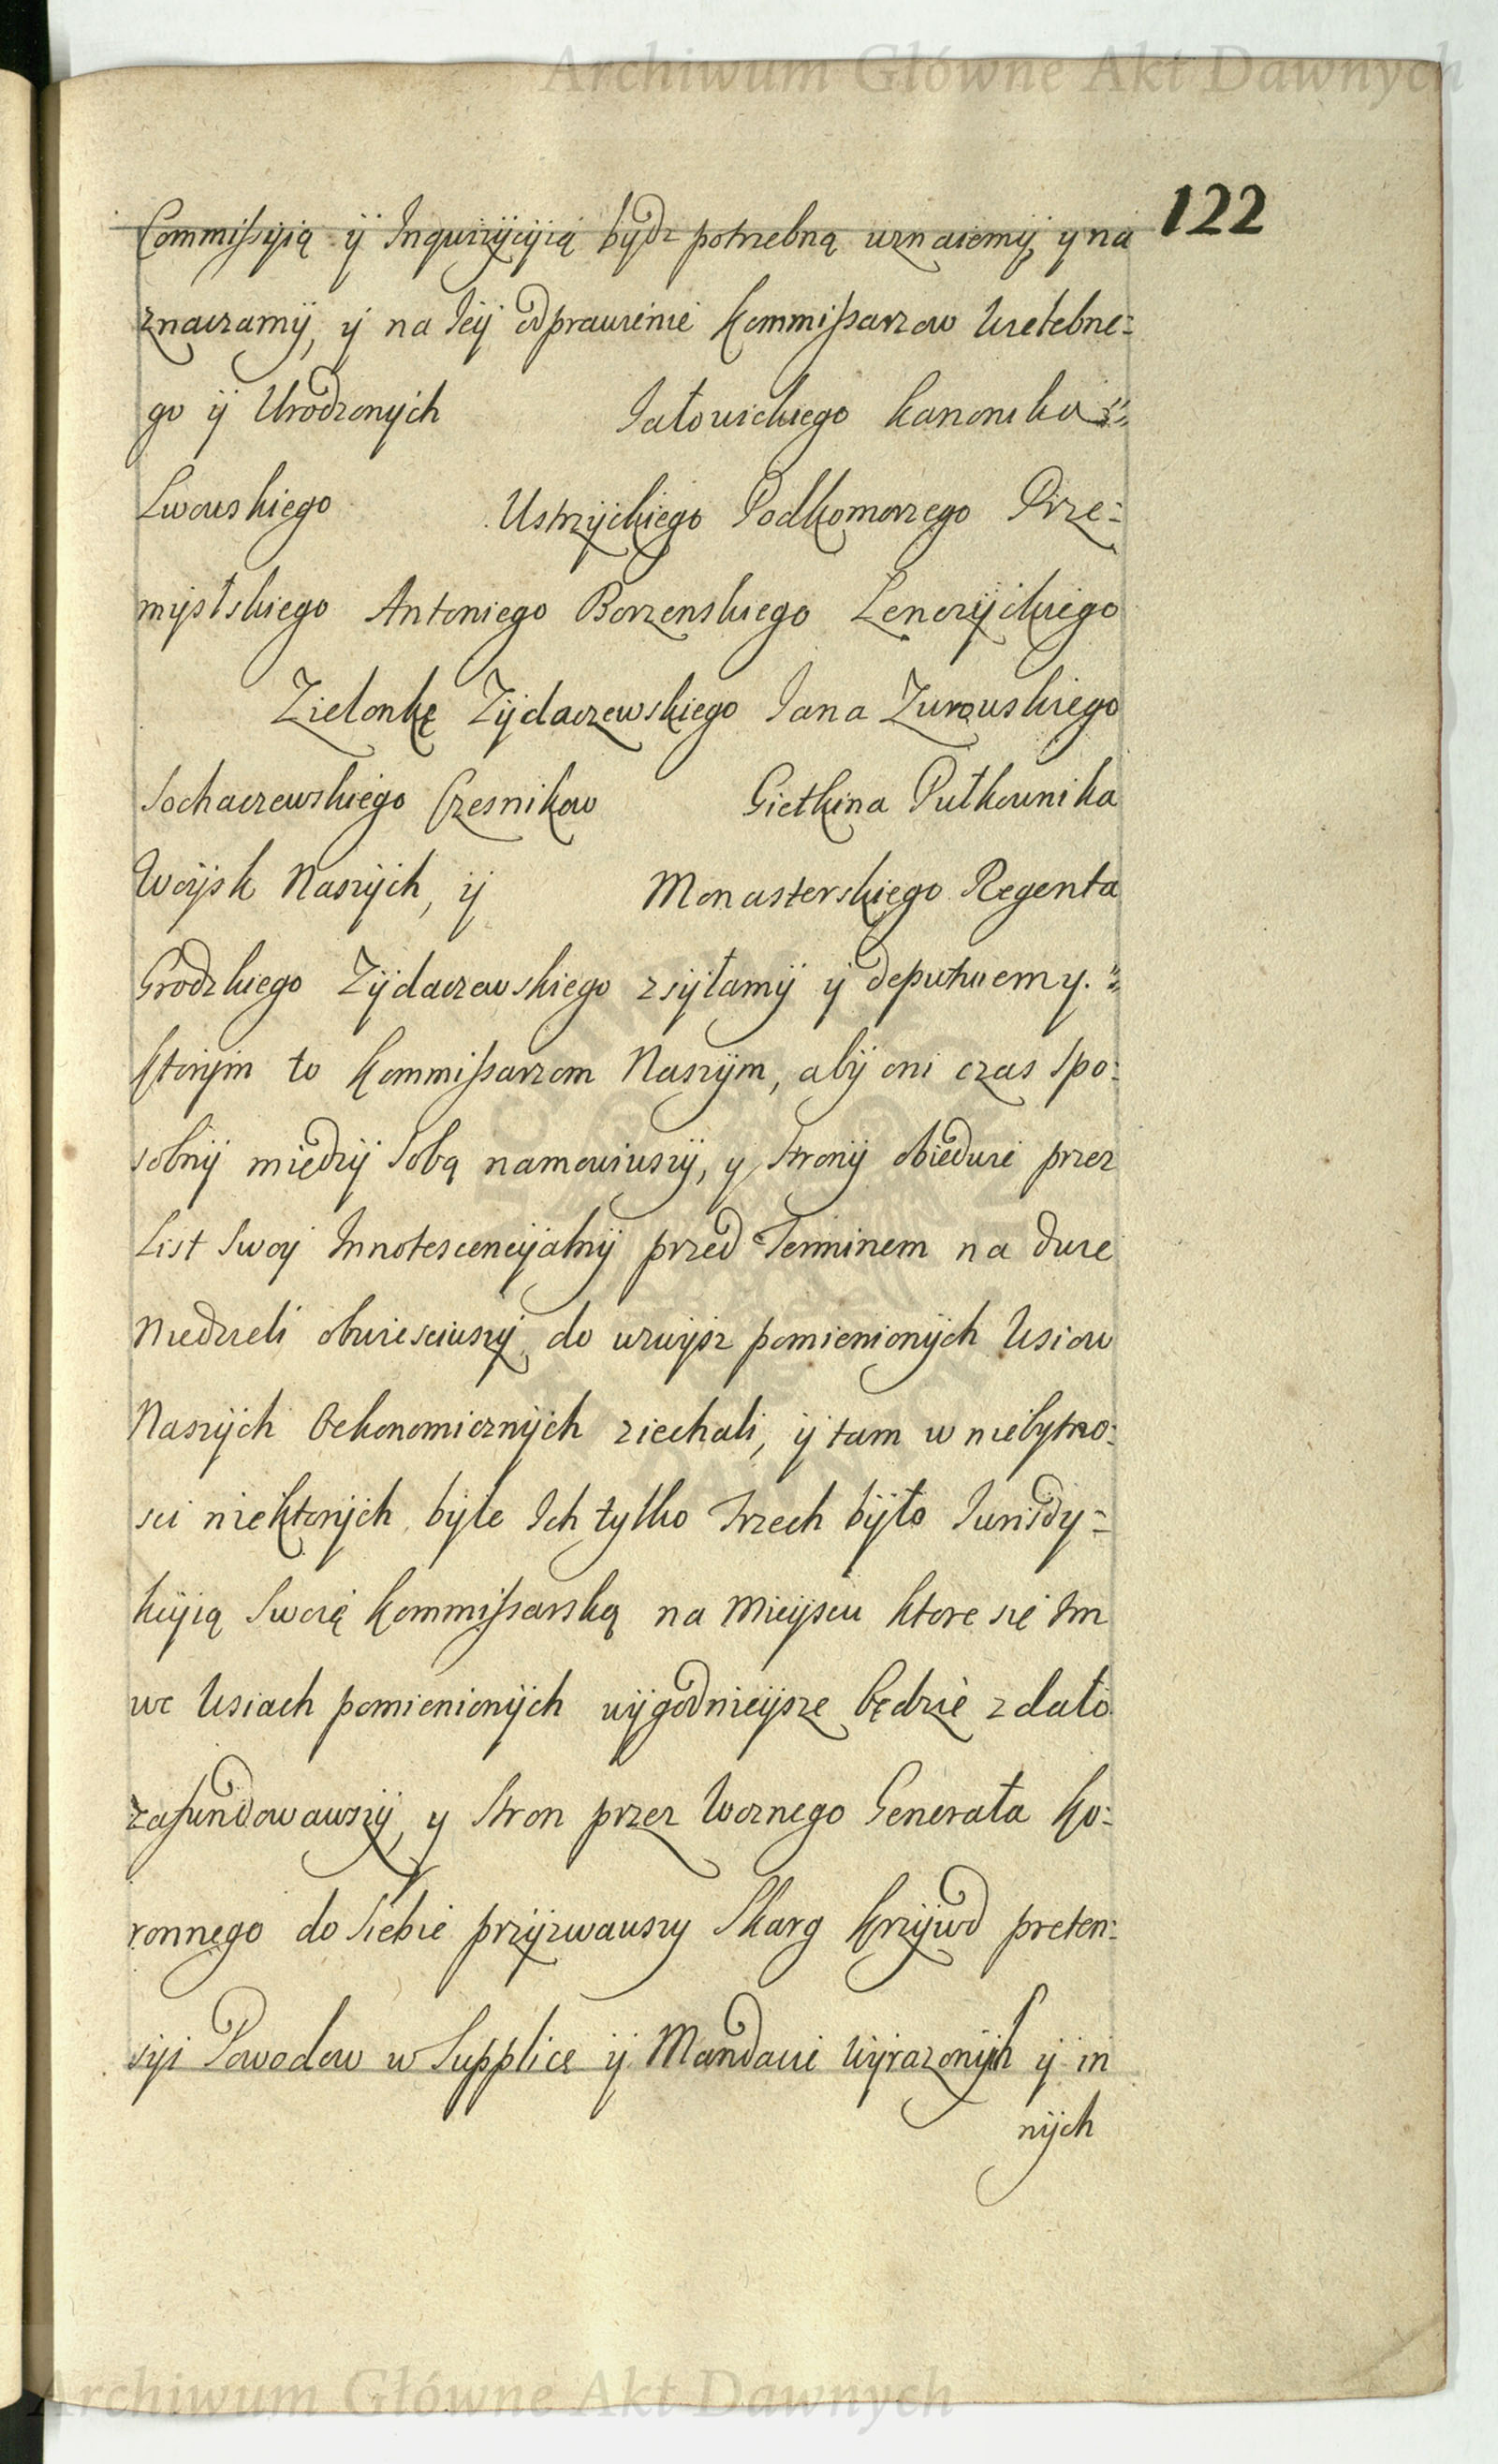 Archiwum Główne Akt Dawnych
122
Commissyią ÿ Inquizycyią bydz potrzebną uznaiemÿ, y na
znaczamÿ, ÿ na Ieÿ odprawienie Kommissarzow Wielebne=
go ÿ Urodzonÿch Jałowickiego Kanonika
Lwowskiego Ustrzÿckiego Podkomorzego Prze=
mÿslskiego Antoniego Borzenskiego Lenczÿckiego
Zielonkę Zÿdaczewskiego Iana Zurowskiego
Sochaczewskiego Czesnikow Gietkina Pułkownika
Woÿsk Naszÿch, ÿ Monasterskiego Regenta
Grodzkiego Zÿdaczewskiego zsÿłamÿ ÿ deputuiemy.
ktorÿm to Kommissarzom Naszÿm, abÿ oni czas spo=
sobnÿ międzÿ Sobą namowiwszÿ, y Stronÿ obiedwie przez
List Swoy Innotescencÿalnÿ przed Terminem na dwie
Niedzieli obwiesciwszÿ, do wzwÿsz pomienionÿch Wsiow
Naszÿch Oekonomicznÿch ziechali, ÿ tam w niebytno=
sci niektorÿch, bÿle Ich tylko Trzech bÿło Iurisdy=
kcÿią Swoię Kommissarską na Mieÿscu ktore się Im
we Wsiach pomienionÿch wÿgodnieÿsze będzie zdało
zafundowawszÿ, y Stron przez Woznego Generała Ko=
ronnego do Siebie przÿzwawszy Skarg Krzÿwd preten=
sÿi Powodow w Supplice ÿ Mandacie Wÿrazonÿch ÿ in
nÿch
Archiwum Główne Akt Dawnych